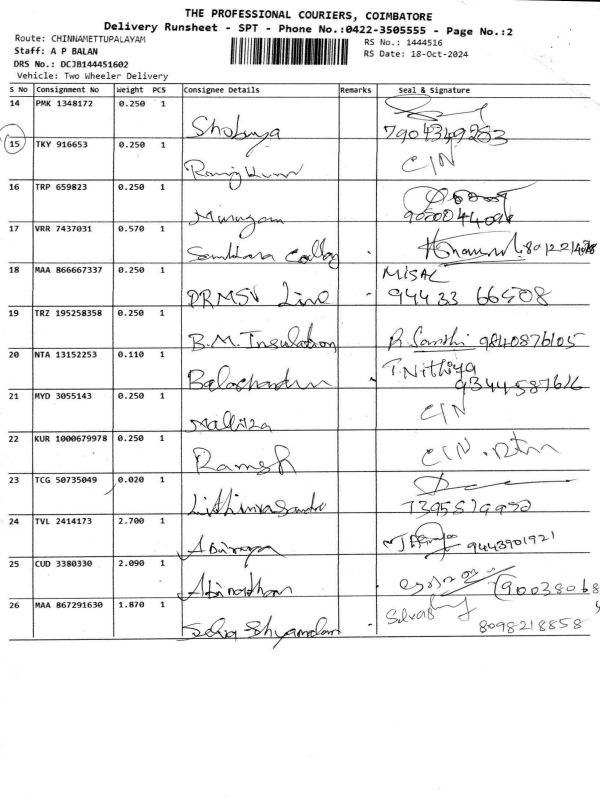 THE PROFESSIONAL COURIERS, COIMBATORE
Delivery Runsheet - SPT - Phone No.:0422-3505555 - Page No.:2
Route: CHINNAMETTUPALAYAM
Staff: A P BALAN
RS No.: 1444516
DRS No.: DCJB144451602
RS Date: 18-Oct-2024
Vehicle: Two Wheeler Delivery
S No Consignment No Weight PCS Consignee Details Remarks Seal & Signature
14 PMK 1348172 0.250 1
Shobuya 7904349253
15 TKY 916653 0.250 1 CIN
Ramj kumar
16 TRP 659823 0.250 1
Murugan
17 VRR 7437031 0.570 1
18 MAA 866667337 0.250 1
DRMSV Line 94433 66508
19 TRZ 195258358 0.250 1
B.M. Insulation R. Santhi 9840876105
20 NTA 13152253 0.110 1 T.Nithiya
Balachandru 9344587616
21 MYD 3055143 0.250 1 CIN
Malliza
22 KUR 1000679978 0.250 1 CIN.
Ramesh
23 TCG 50735049 0.020 1
7395879992
24 TVL 2414173 2.700 1
9443901921
25 CUD 3380330 2.090 1
Abinathan 90038068
26 MAA 867291630 1.870 1
Selva Shyamalan 8098218858